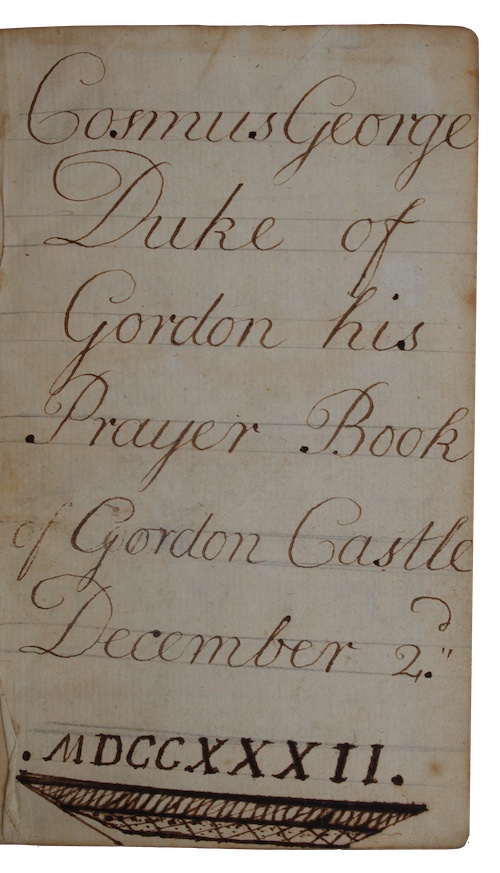 Cosmus George
Duke of
Gordon his
Prayer Book
of Gordon Castle
December 2.d
.MDCCXXXII.